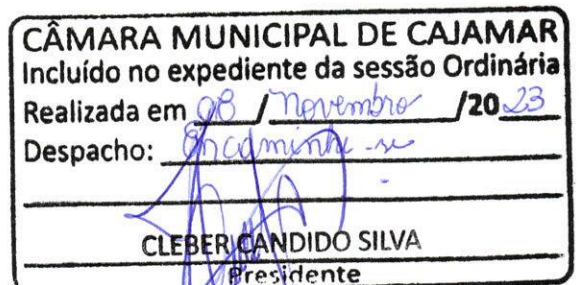 CÂMARA MUNICIPAL DE CAJAMAR
Incluído no expediente da sessão Ordinária
Realizada em 08 / novembro /2023
Despacho: Encaminhe-se
CLEBER CANDIDO SILVA
Presidente